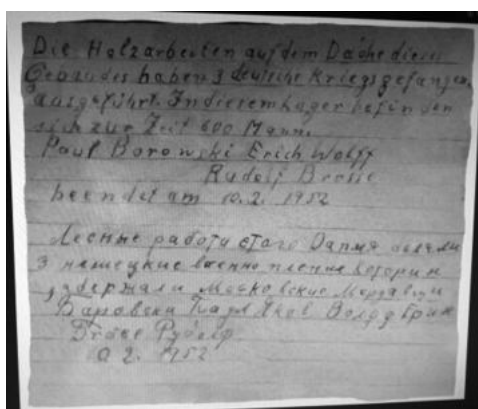 Die Holzarbeiten auf dem Dache dieses
Gebäudes haben 3 deutsche Kriegsgefangen.
ausgeführt. In dierem Lager befinden
sich zur Zeit 600 Mann.
Paul Borowski Erich Wolff
Rudolf Brosse
beendet am 10.2. 1952
Лесные работу етого
3 немецкие военно пленые которий
здержали
Баровски Паул
Рудолф
0 2. 1952